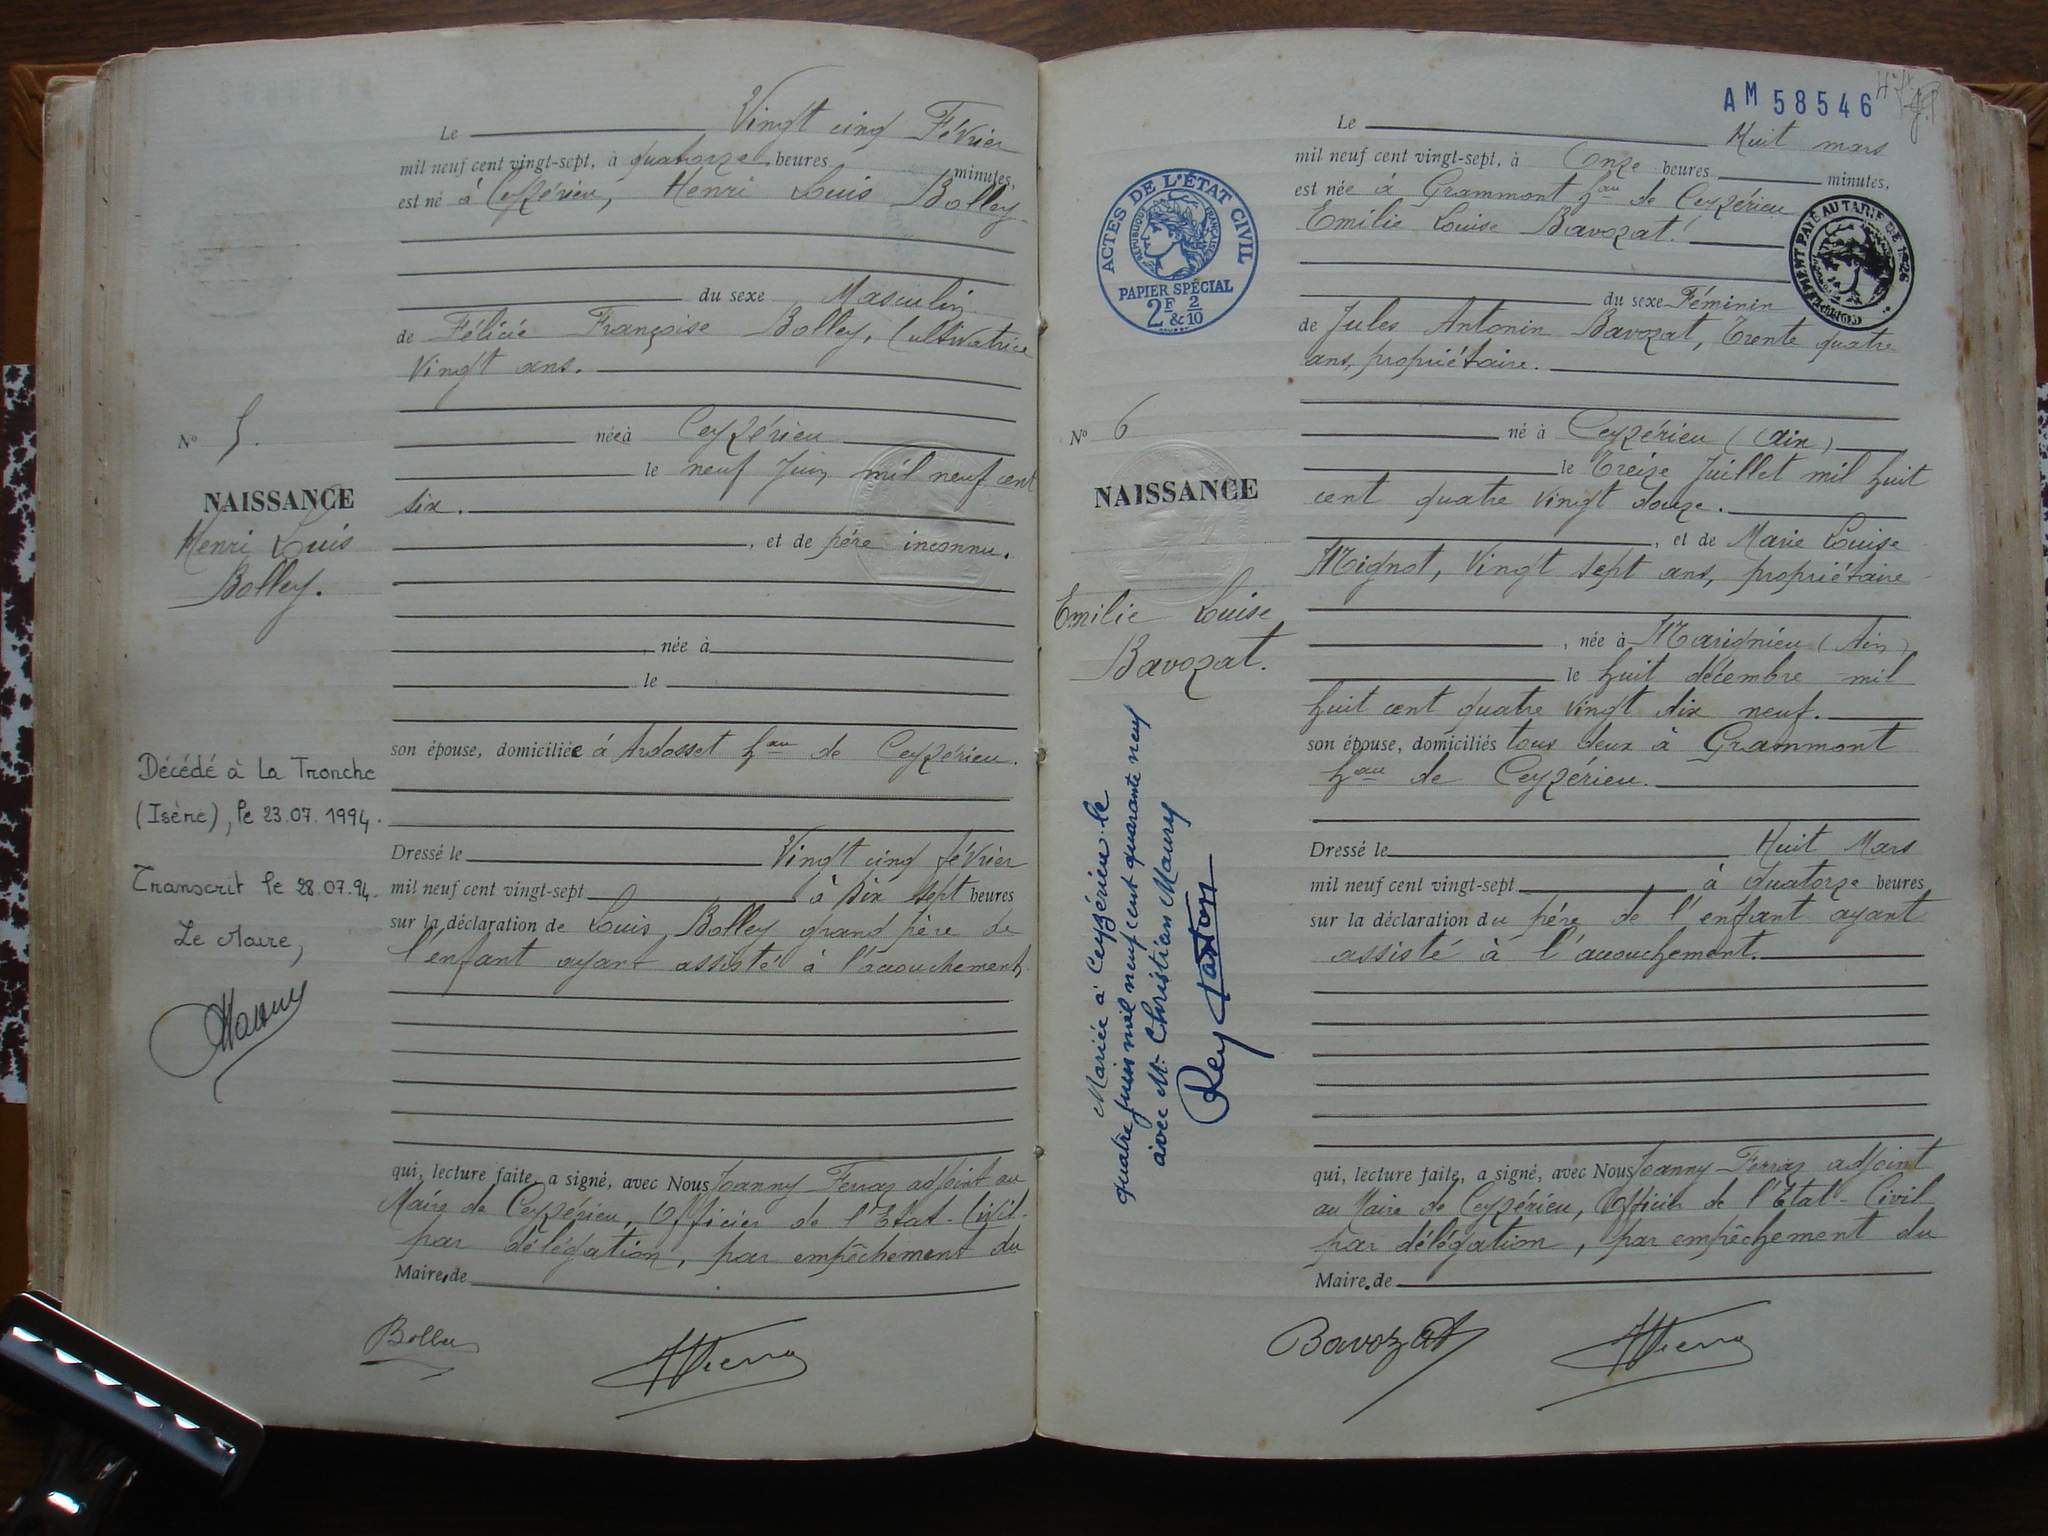 Le Vingt cinq Février
mil neuf cent vingt-sept, à quatorze heures minutes,
est né à Ceyzérieu, Henri Louis Bolley
du sexe Masculin
de Félicie Françoise Bolley, Cultivatrice
Vingt ans.
née à Ceyzérieu
le neuf Juin mil neuf cent
six.
, et de père inconnu.
, née à
le
son épouse, domiciliée à Ardosset hau de Ceyzérieu.
Dressé le Vingt cinq février
mil neuf cent vingt-sept à Dix sept heures
sur la déclaration de Louis Bolley grand père de
l'enfant ayant assisté à l'accouchement
qui, lecture faite, a signé, avec Nous Joanny Ferraz adjoint au
Maire de Ceyzérieu, Officier de l'Etat-Civil
par délégation, par empêchement du
Maire. de
Bolley
No 5.
NAISSANCE
Henri Louis
Bolley.
Décédé à La Tronche
(Isère), le 23.07.1994.
Transcrit le 28.07.94.
Le Maire,
AM 58546
ACTES DE L'ÉTAT CIVIL
RÉPUBLIQUE FRANÇAISE
PAPIER SPÉCIAL
2F & 2/10
COMPLÉMENT PAYÉ AU TARIF DE 1926
Le Huit mars
mil neuf cent vingt-sept, à Onze heures minutes,
est née à Grammont hau de Ceyzérieu
Emilie Louise Bavozat.
du sexe Féminin
de Jules Antonin Bavozat, Trente quatre
ans, propriétaire.
né à Ceyzérieu (Ain)
le Treize Juillet mil huit
cent quatre vingt douze.
, et de Marie Louise
Mignot, Vingt sept ans, propriétaire
, née à Marignieu (Ain)
le huit décembre mil
huit cent quatre vingt dix neuf.
son épouse, domiciliés tous deux à Grammont
hau de Ceyzérieu.
Dressé le Huit Mars
mil neuf cent vingt-sept à Quatorze heures
sur la déclaration du père de l'enfant ayant
assisté à l'accouchement.
qui, lecture faite, a signé, avec Nous Joanny Ferraz adjoint
au Maire de Ceyzérieu, Officier de l'Etat-Civil
par délégation, par empêchement du
Maire. de
Bavozat
No 6
NAISSANCE
Emilie Louise
Bavozat.
Mariée à Ceyzérieu le
quatre juin mil neuf cent quarante neuf
avec Mr Christian Maury